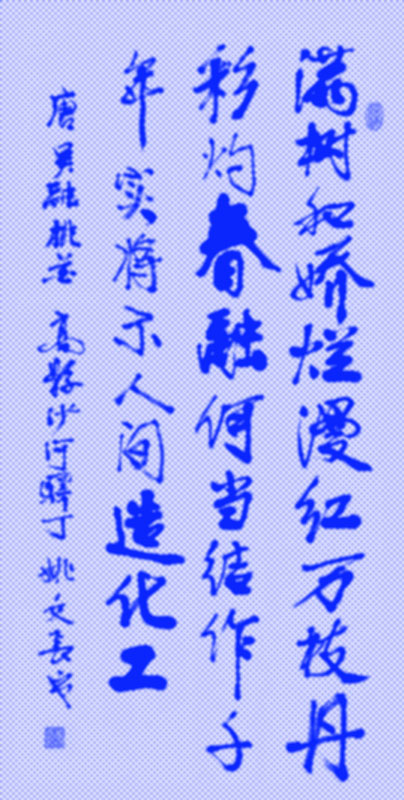 满树和娇烂漫红万枝丹
彩灼春融何当结作千
年实将示人间造化工
唐吴融桃花 高縣沙河驛丁 姚文長书